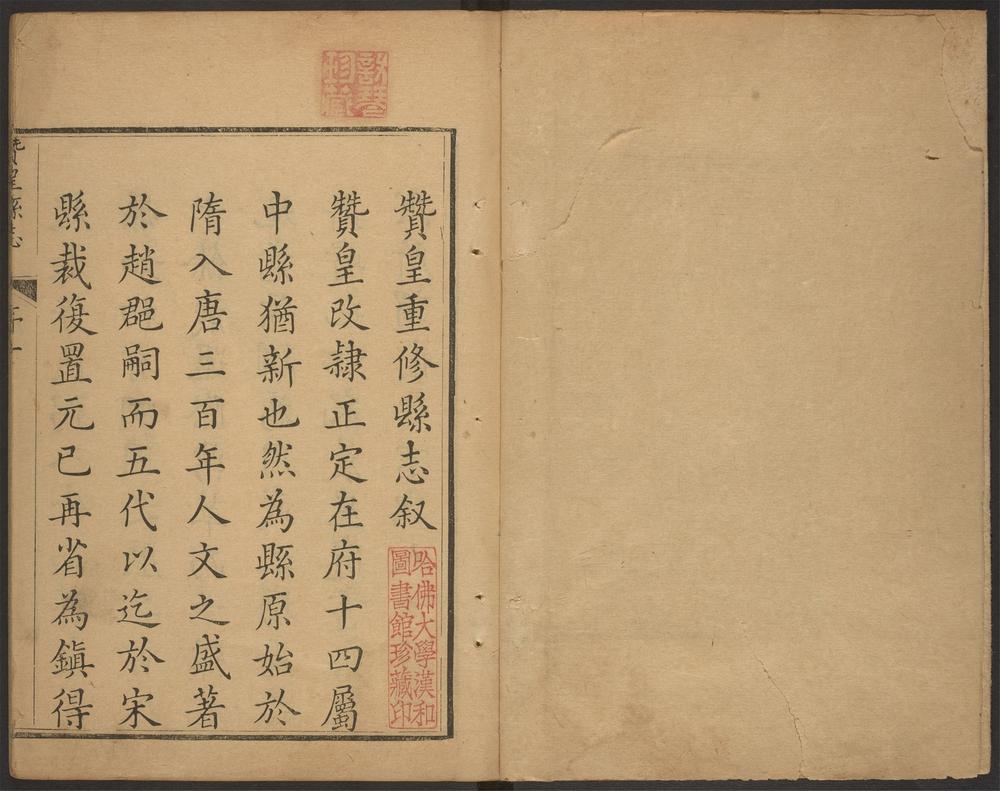 贊皇重修縣志叙
哈佛大學漢和
圖書館珍藏印
贊皇改隷正定在府十四屬
中縣猶新也然為縣原始於
隋入唐三百年人文之盛著
於趙郡嗣而五代以迄於宋
縣裁復置元已再省為鎭得
贊皇縣志
序一